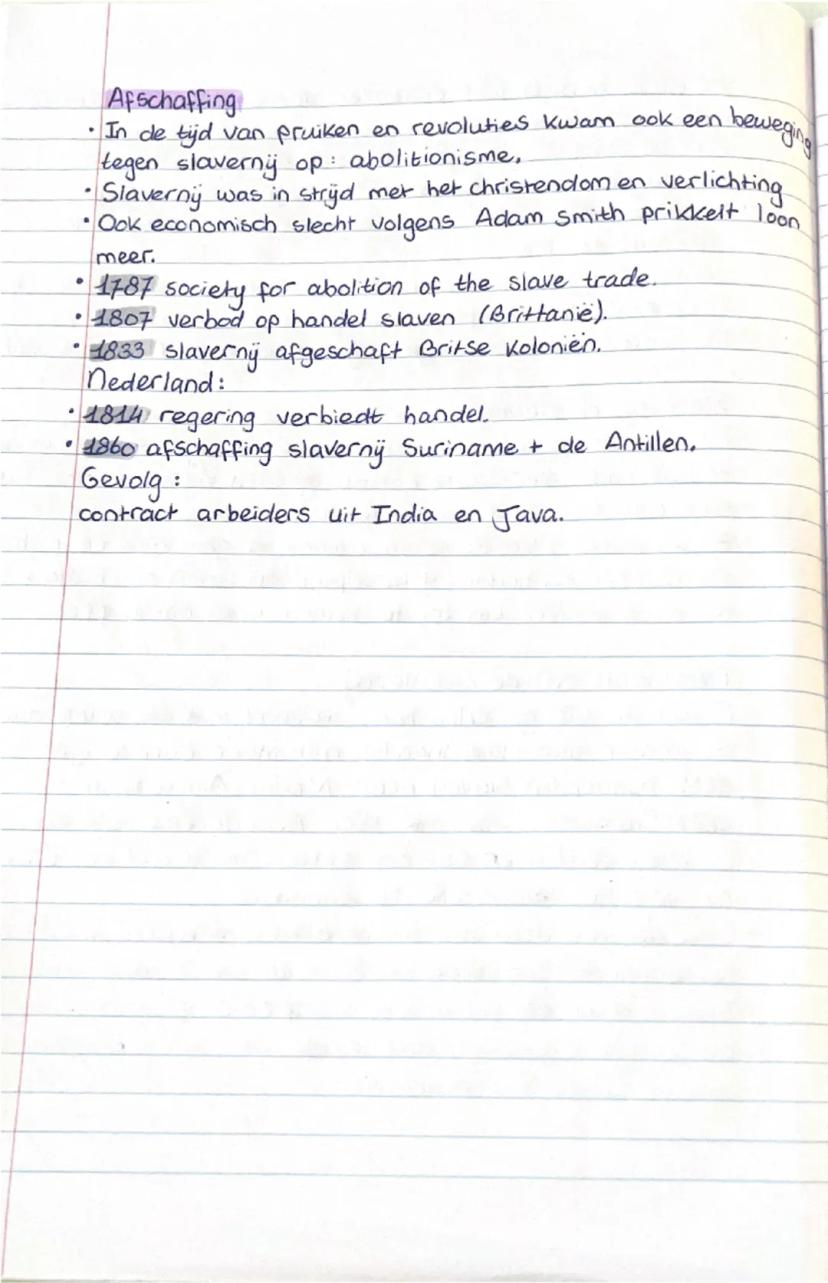 Afschaffing
· In de tijd van pruiken en revoluties kwam ook een beweging
tegen slavernij op: abolitionisme.
· Slavernij was in strijd met het christendom en verlichting
· Ook economisch slecht volgens Adam Smith prikkelt loon
meer.
· 1787 society for abolition of the slave trade.
· 1807 verbod op handel slaven (Brittanië).
· 1833 slavernij afgeschaft Britse Koloniën.
Nederland:
· 1814 regering verbiedt handel.
· 1860 afschaffing slavernij Suriname + de Antillen.
Gevolg:
contract arbeiders uit India en Java.